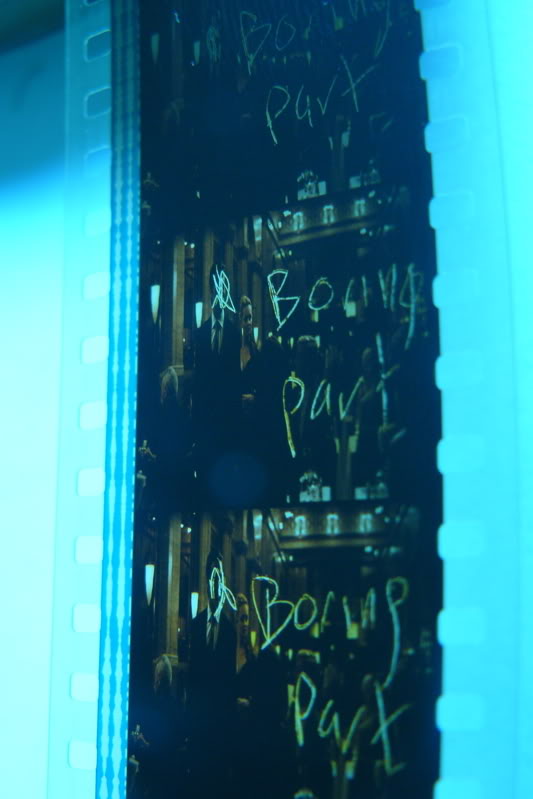 Boring
part
Boring
part
Boring
part